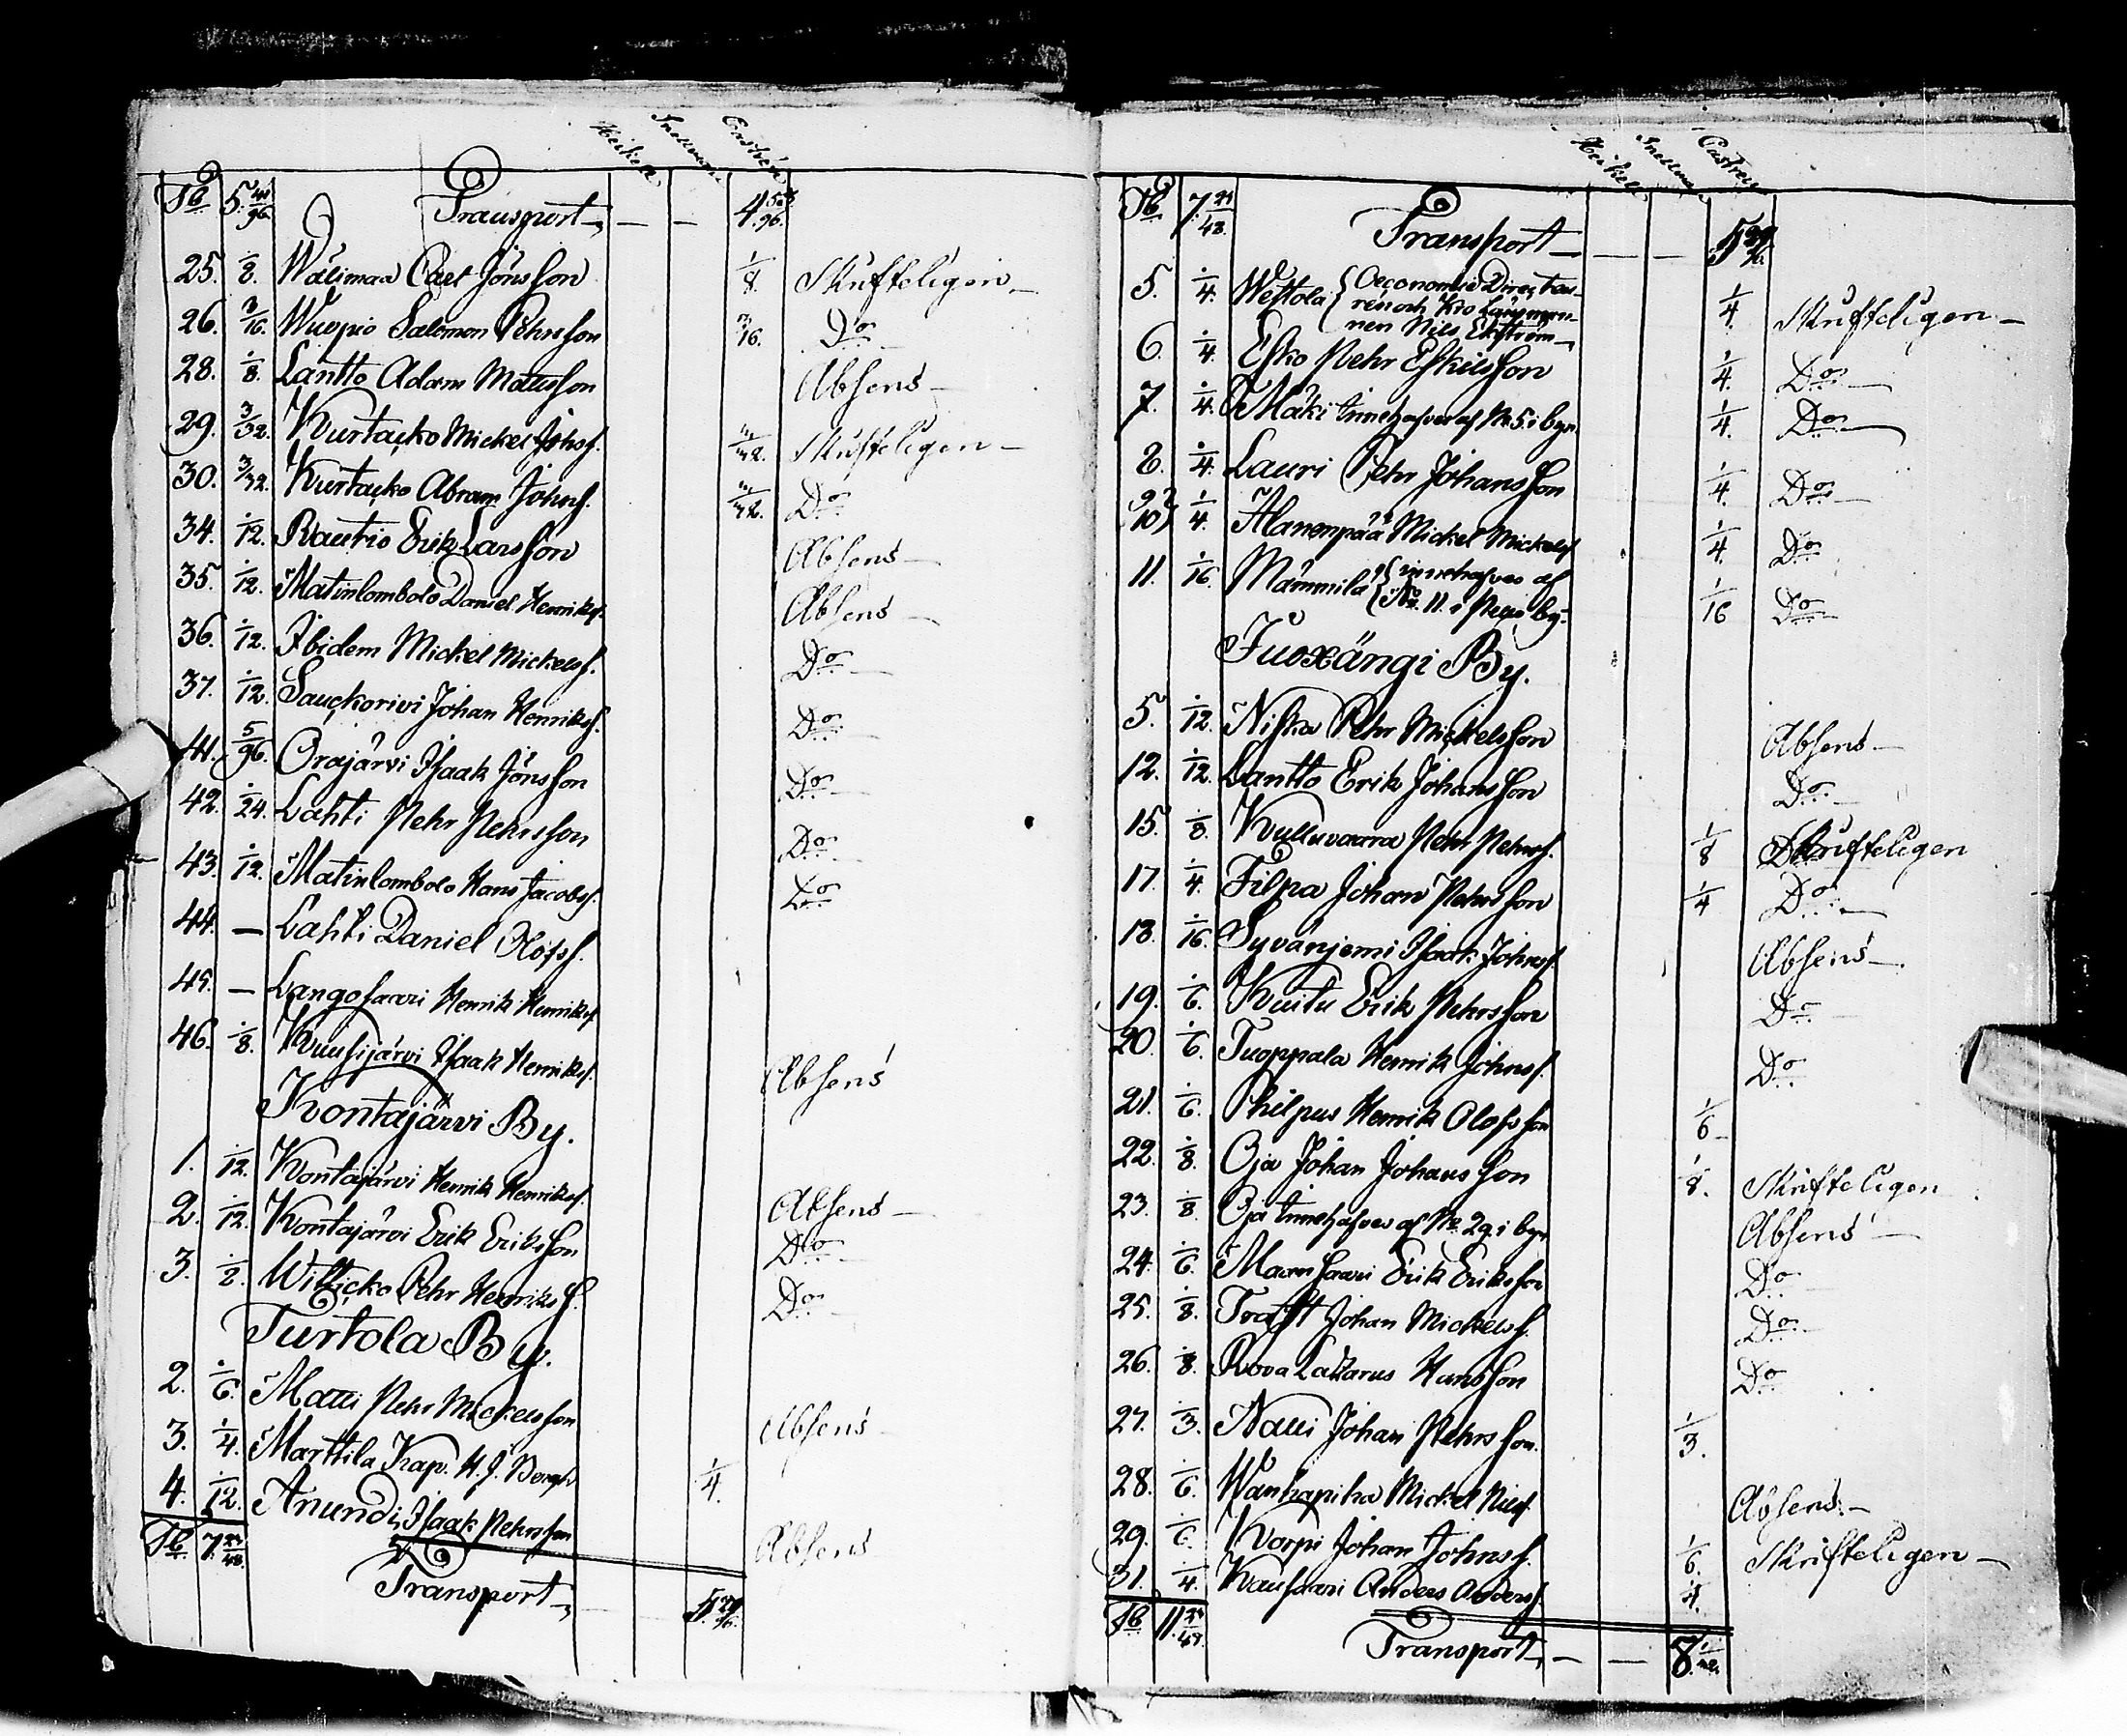 Heikel Snellman Castrén
S:a 5. 41/96 Transport — — — 4. 53/96.
25. 1/8. Wälimaa Carl Jönsson 1/8. Skrifteligen —
26. 3/16. Wuopio Salomon Pehrsson 3/16. D:o
28. 1/8. Lantto Adam Matsson Absens —
29. 3/32. Kurtacko Mickel Johss. 3/32. Skrifteligen —
30. 3/32. Kurtacko Abram Johnss. 3/32. D:o
34. 1/12. Rautio Erik Larsson Absens —
35. 1/12. Matinlombolo Daniel Henrikss. Absens —
36. 1/12. Ibidem Mickel Mickelss. D:o —
37. 1/12. Sauckorivi Johan Henrikss. D:o —
41. 5/96. Orajärvi Isaak Jönsson D:o —
42. 1/24. Lahti Pehr Pehrsson D:o —
43. 1/12. Matinlombolo Hans Jacobss. D:o
44. — Lahti Daniel Olofss.
45. — Langosaari Henrik Henrikss.
46. 1/8. Kuusijärvi Isaak Henrikss. Absens
Kontajärvi By.
1. 1/12. Kontajärvi Henrik Henrikss. Absens —
2. 1/12. Kontajärvi Erik Eriksson D:o —
3. 1/2. Witticko Pehr Henrikss. D:o —
Turtola By.
2. 1/6. Matti Pehr Mickelsson Absens —
3. 1/4. Marttila Kap. H. J. Bergh 1/4.
4. 1/12. Anundi, Isaak Pehrsson Absens
S:a 7. 29/48. Transport —
Heikel Snellman Castrén
S:a 7. 29/48. Transport — — —
5. 1/4. Wettola { Oeconomie Directeu-
ren och Kro Länsman-
nen Nils Ekström — 1/4 Skrifteligen —
6. 1/4. Esko Pehr Eskilsson 1/4. D:o —
7. 1/4. Mäki innehafves af No 5. i byn. 1/4. D:o —
8. 1/4. Lauri Pehr Johansson 1/4. D:o —
9 }
10 } 1/4. Alanenpää Mickel Mickelss. 1/4. D:o
11. 1/16. Mämmilä { innehafves af
No. 11. i Pello by. 1/16 D:o
Juoxängi By.
5. 1/12. Niska Pehr Mickelsson Absens —
12. 1/12. Lantto Erik Johansson D:o —
15. 1/8. Kulluvaara Pehr Pehrss. 1/8 Skrifteligen
17. 1/4. Filpa Johan Pehrsson 1/4 D:o —
18. 1/16. Syvänjemi Isaak Johnss. Absens —
19. 1/6. Kuitu Erik Pehrsson D:o —
20. 1/6. Tuoppala Henrik Johnss. D:o
21. 1/6. Philpus Henrik Olofsson 1/6 —
22. 1/8. Oja Johan Johansson 1/8. Skrifteligen
23. 1/8. Oja innehafves af No. 29. i byn Absens —
24. 1/6. Maansaari Erik Eriksson D:o —
25. 1/8. Trast Johan Mickelss. D:o —
26. 1/8. Rova Lazarus Hansson D:o
27. 1/3. Nalli Johan Pehrsson. 1/3.
28. 1/6. Wanhapiha Mickel Nilss. Absens —
29. 1/6. Korpi Johan Johnss. 1/6. Skrifteligen —
31. 1/4. Kausaari Anders Anderss. 1/4.
S:a 11. 29/48. Transport — —